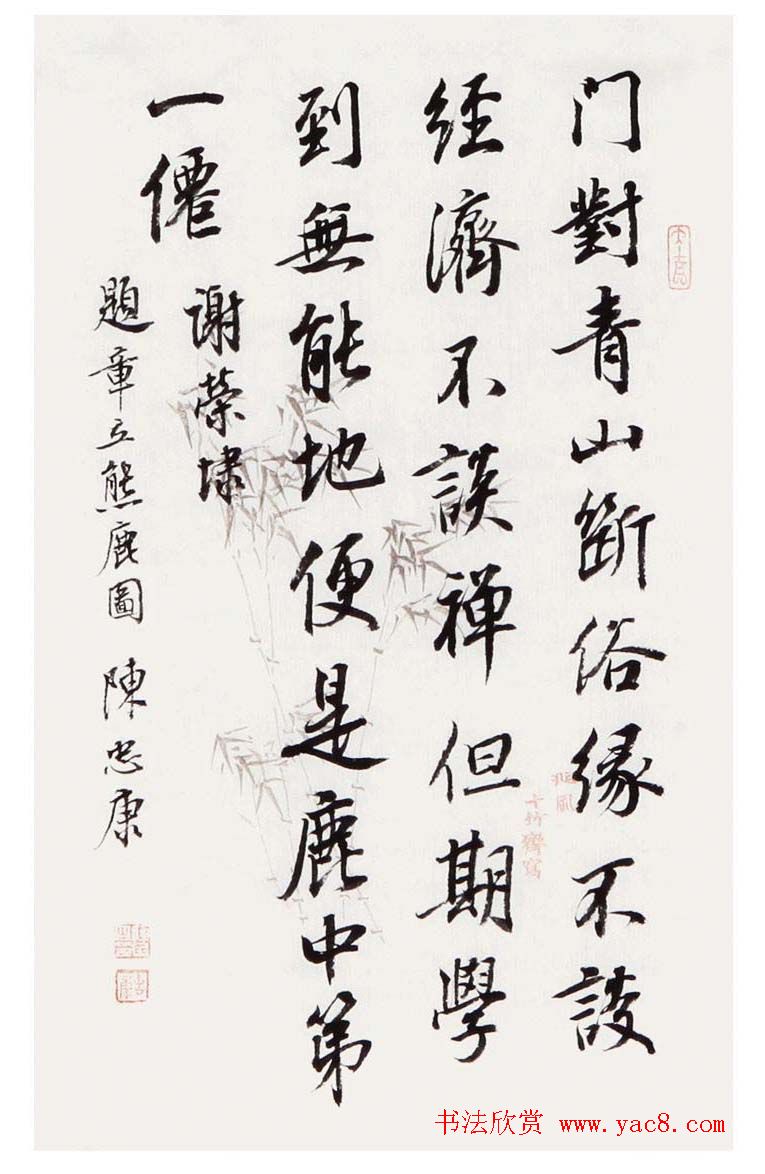 門對青山斷俗緣不談
經濟不談禪但期學
到無能地便是鹿中第
一僊 謝榮埭
題章立熊鹿圖 陳忠康
十竹齋寫
书法欣赏 www.yac8.com